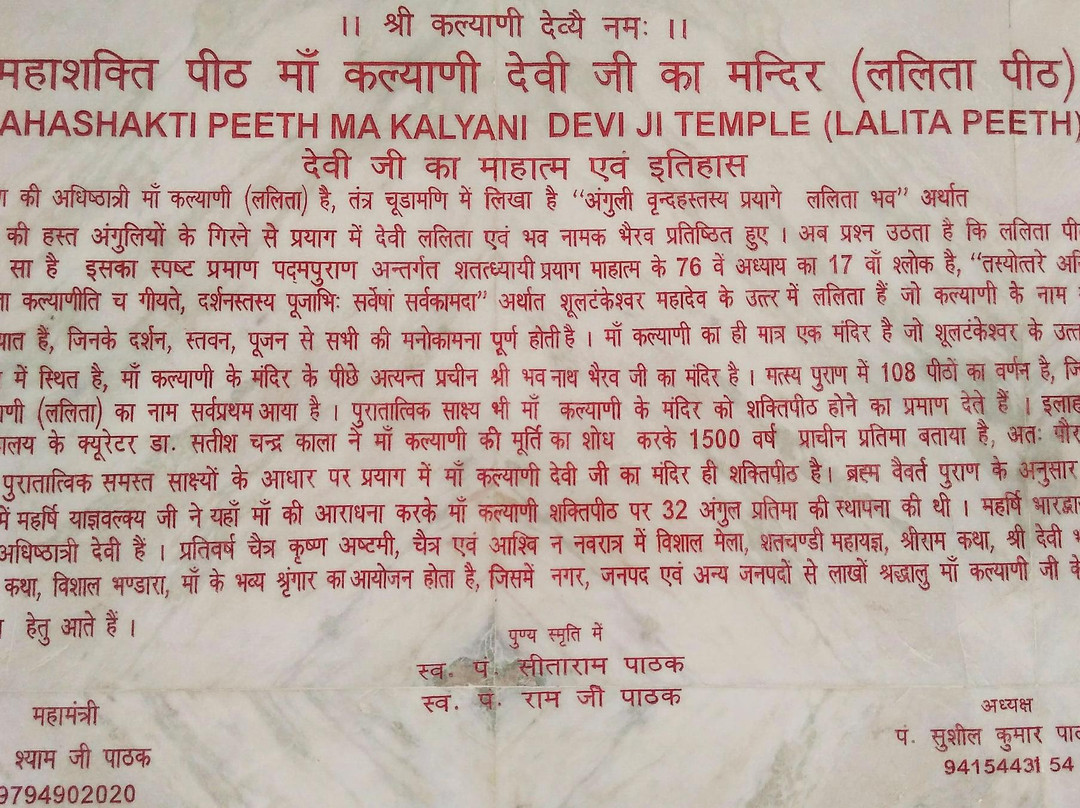 ।। श्री कल्याणी देव्यै नमः ।।
महाशक्ति पीठ माँ कल्याणी देवी जी का मन्दिर (ललिता पीठ)
AHASHAKTI PEETH MA KALYANI DEVI JI TEMPLE (LALITA PEETH)
देवी जी का माहात्म एवं इतिहास
की अधिष्ठात्री माँ कल्याणी (ललिता) है, तंत्र चूडामणि में लिखा है “अंगुली वृन्दहस्तस्य प्रयागे ललिता भव” अर्थात
की हस्त अंगुलियों के गिरने से प्रयाग में देवी ललिता एवं भव नामक भैरव प्रतिष्ठित हुए । अब प्रश्न उठता है कि ललिता
सा है इसका स्पष्ट प्रमाण पद्मपुराण अन्तर्गत शतत्ध्यायी प्रयाग माहात्म के 76 वें अध्याय का 17 वाँ श्लोक है, “तस्योत्तरे
कल्याणीति च गीयते, दर्शनस्तस्य पूजाभिः सर्वेषां सर्वकामदा” अर्थात शूलटंकेश्वर महादेव के उत्तर में ललिता हैं जो कल्याणी के नाम
हैं, जिनके दर्शन, स्तवन, पूजन से सभी की मनोकामना पूर्ण होती है । माँ कल्याणी का ही मात्र एक मंदिर है जो शूलटंकेश्वर के
में स्थित है, माँ कल्याणी के मंदिर के पीछे अत्यन्त प्रचीन श्री भव नाथ भैरव जी का मंदिर है । मत्स्य पुराण में 108 पीठों का वर्णन है,
(ललिता) का नाम सर्वप्रथम आया है । पुरातात्विक साक्ष्य भी माँ कल्याणी के मंदिर को शक्तिपीठ होने का प्रमाण देते हैं ।
के क्यूरेटर डा. सतीश चन्द्र काला ने माँ कल्याणी की मूर्ति का शोध करके 1500 वर्ष प्राचीन प्रतिमा बताया है, अतः
पुरातात्विक समस्त साक्ष्यों के आधार पर प्रयाग में माँ कल्याणी देवी जी का मंदिर ही शक्तिपीठ है। ब्रह्म वैवर्त पुराण के अनुसार
में महर्षि याज्ञवल्क्य जी ने यहाँ माँ की आराधना करके माँ कल्याणी शक्तिपीठ पर 32 अंगुल प्रतिमा की स्थापना की थी । महर्षि
अधिष्ठात्री देवी हैं । प्रतिवर्ष चैत्र कृष्ण अष्टमी, चैत्र एवं आश्वि न नवरात्र में विशाल मेला, शतचण्डी महायज्ञ, श्रीराम कथा, श्री देवी
कथा, विशाल भण्डारा, माँ के भव्य श्रृंगार का आयोजन होता है, जिसमें नगर, जनपद एवं अन्य जनपदों से लाखों श्रद्धालु माँ कल्याणी जी के
हेतु आते हैं ।
पुण्य स्मृति में
स्व. पं. सीताराम पाठक
स्व. पं. राम जी पाठक
महामंत्री
श्याम जी पाठक
9794902020
अध्यक्ष
पं. सुशील कुमार
94154431 54